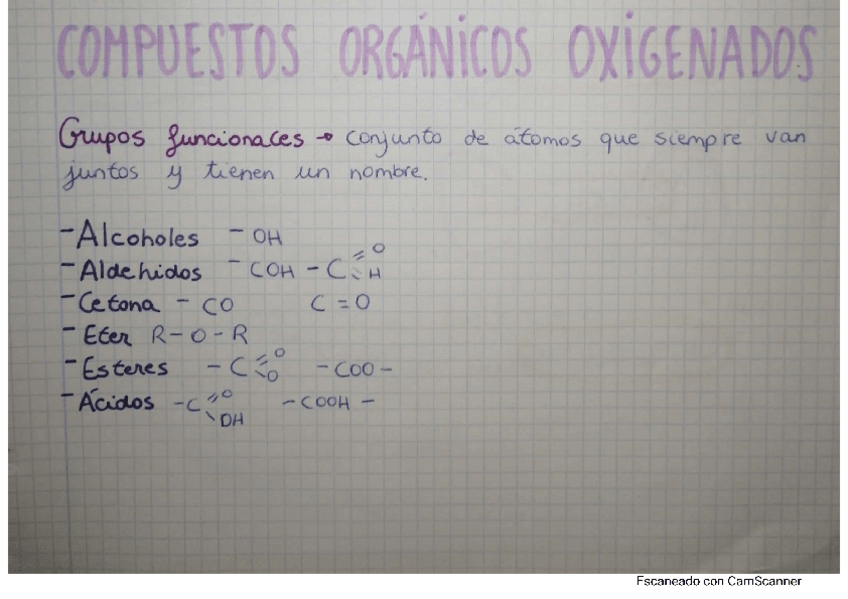 COMPUESTOS ORGÁNICOS OXIGENADOS
Grupos funcionales → conjunto de átomos que siempre van
juntos y tienen un nombre.
- Alcoholes - OH
- Aldehidos - COH - C = O H
- Cetona - CO C = O
- Eter R - O - R
- Esteres - C = O O - COO -
- Ácidos - C = O OH - COOH -
Escaneado con CamScanner